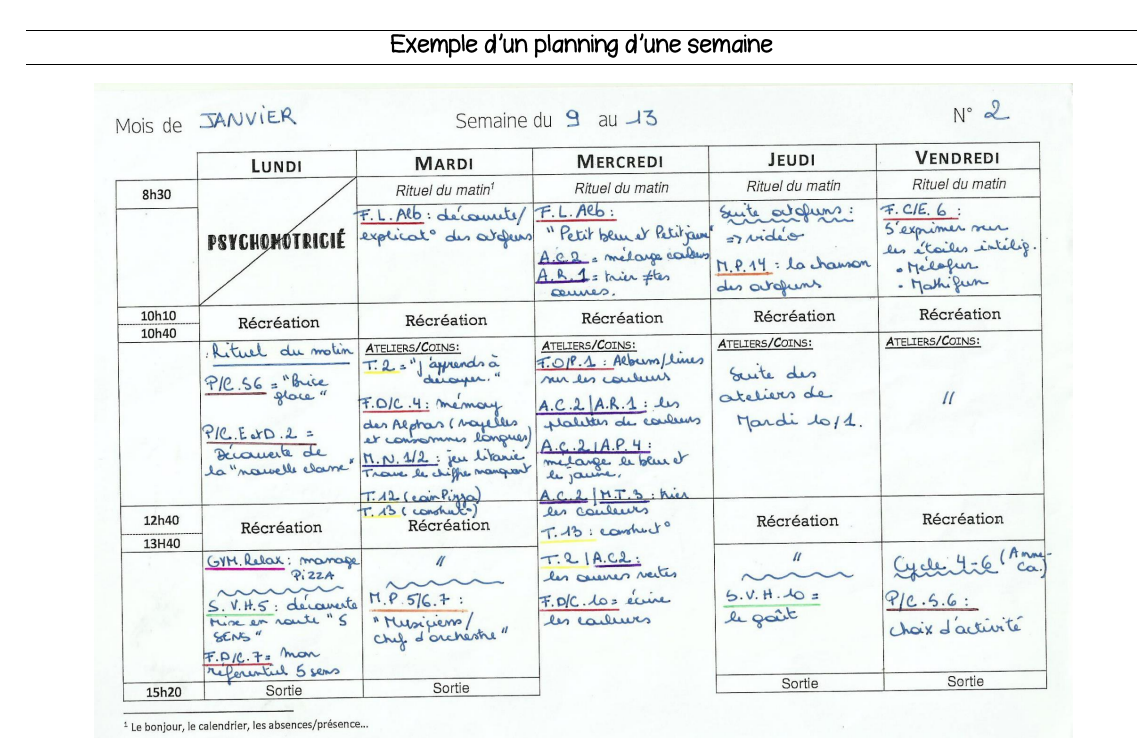 Exemple d'un planning d'une semaine
Mois de JANVIER
Semaine du 9 au 13
N° 2
LUNDI
MARDI
MERCREDI
JEUDI
VENDREDI
8h30
PSYCHOMOTRICIÉ
Rituel du matin¹
Rituel du matin
Rituel du matin
Rituel du matin
F.L.Alb : découverte/
explicat° des
F.L.Alb :
"Petit bleu et Petit jaune"
A.C.2 = mélange couleurs
A.R.1 = trier ≠tes
œuvres.
Suite :
=> vidéo
M.P.14 : la chanson
des
F.C/E.6 :
S'exprimer sur
les étoiles intellig.
• Mélofun
• Mathifun
10h10
10h40
Récréation
Récréation
Récréation
Récréation
Récréation
: Rituel du matin
P/C.S6 = "Brice
glace"
P/C.E et D.2 =
Découverte de
la "nouvelle classe"
ATELIERS/COINS:
T.2 = "j'apprends à
découper."
F.D/C.4 : mémory
des Alphas (voyelles
et consonnes longues)
M.N.1/2 : jeu litanie
Trouve le chiffre manquant
T.12 (coin Pizza)
T.13 (construct°)
ATELIERS/COINS:
F.O/P.1 : Albums/livres
sur les couleurs
A.C.2 | A.R.1 : les
palettes de couleurs
A.C.2 | A.P.4 :
mélange le bleu et
le jaune.
A.C.2 | M.T.3 : trier
les couleurs
T.13 : construct°
T.2 | A.C.2 :
les œuvres vertes
F.D/C.10 = écrire
les couleurs
ATELIERS/COINS:
Suite des
ateliers de
Mardi 10/1.
ATELIERS/COINS:
//
12h40
13H40
Récréation
Récréation
Récréation
Récréation
GYM.Relax : massage
PIZZA
S.V.H.5 : découverte
Mise en route "5
SENS"
F.D/C.7 = mon
référentiel 5 sens
//
M.P.5/6.7 :
"Musiciens/
chef d'orchestre"
//
S.V.H.10 =
le goût
Cycle 4-6 (Anne-
Ca.)
P/C.S.6 :
choix d'activité
15h20
Sortie
Sortie
Sortie
Sortie
¹ Le bonjour, le calendrier, les absences/présence...